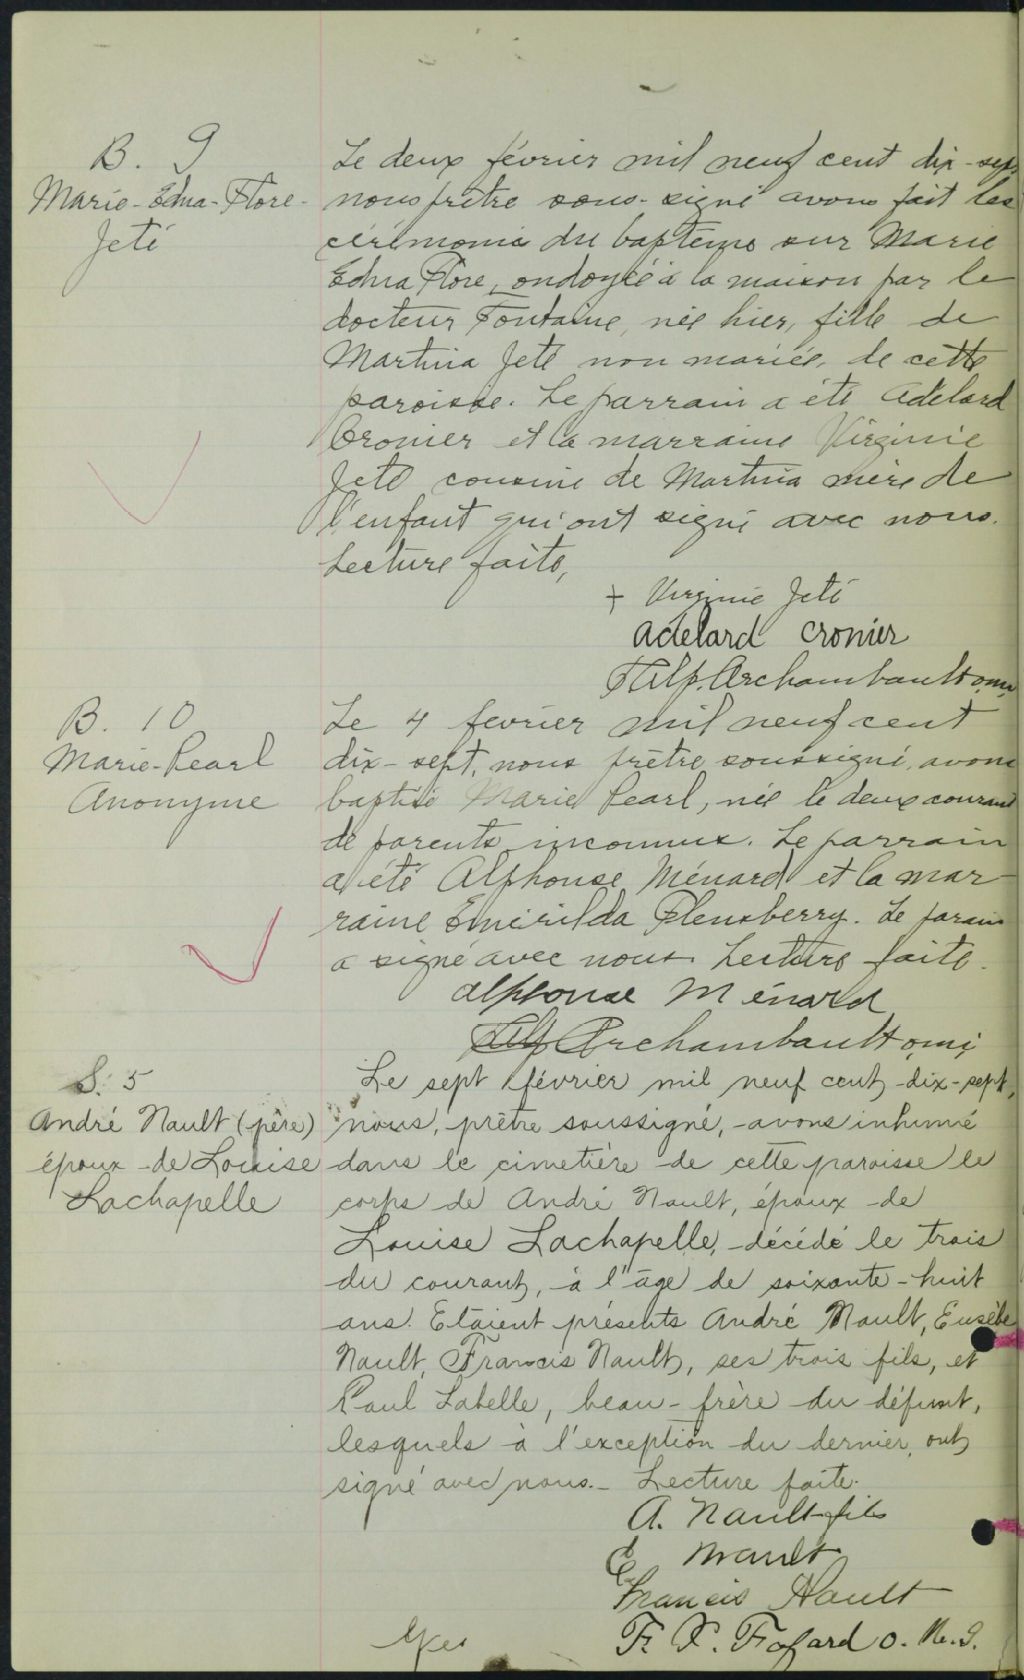 B. 9
Marie-Edna-Flore-
Jeté
Le deux février mil neuf cent dix-sept
nous prêtre sous-signé avons fait les
cérémonies du baptême sur Marie
Edna Flore, ondoyée à la maison par le
docteur Fontaine, née hier, fille de
Martina Jeté non mariée, de cette
paroisse. Le parrain a été Adélard
Cronier et la marraine Virginie
Jeté cousine de Martina mère de
l'enfant qui ont signé avec nous.
Lecture faite,
+ Virginie Jeté
Adelard Cronier
Alp. Archambault o.m.i.
B. 10
Marie-Pearl
Anonyme
Le 4 fevrier mil neuf cent
dix-sept, nous prêtre soussigné, avons
baptisé Marie Pearl, née le deux courant
de parents inconnus. Le parrain
a été Alphonse Ménard et la mar-
raine Emérilda Plensberry. Le parain
a signé avec nous. Lecture faite.
Alphonse Ménard
Alp Archambault o.m.i.
S. 5
André Nault (père)
époux de Louise
Lachapelle
Le sept février mil neuf cent dix-sept,
nous, prêtre soussigné, avons inhumé
dans le cimetière de cette paroisse le
corps de André Nault, époux de
Louise Lachapelle, décédé le trois
du courant, à l'âge de soixante-huit
ans. Etaient présents André Nault, Eusèbe
Nault, Francis Nault, ses trois fils, et
Paul Labelle, beau-frère du défunt,
lesquels à l'exception du dernier, ont
signé avec nous.- Lecture faite.
A. Nault fils
E Nault
Francis Nault
F. X. Fafard o. M. I.